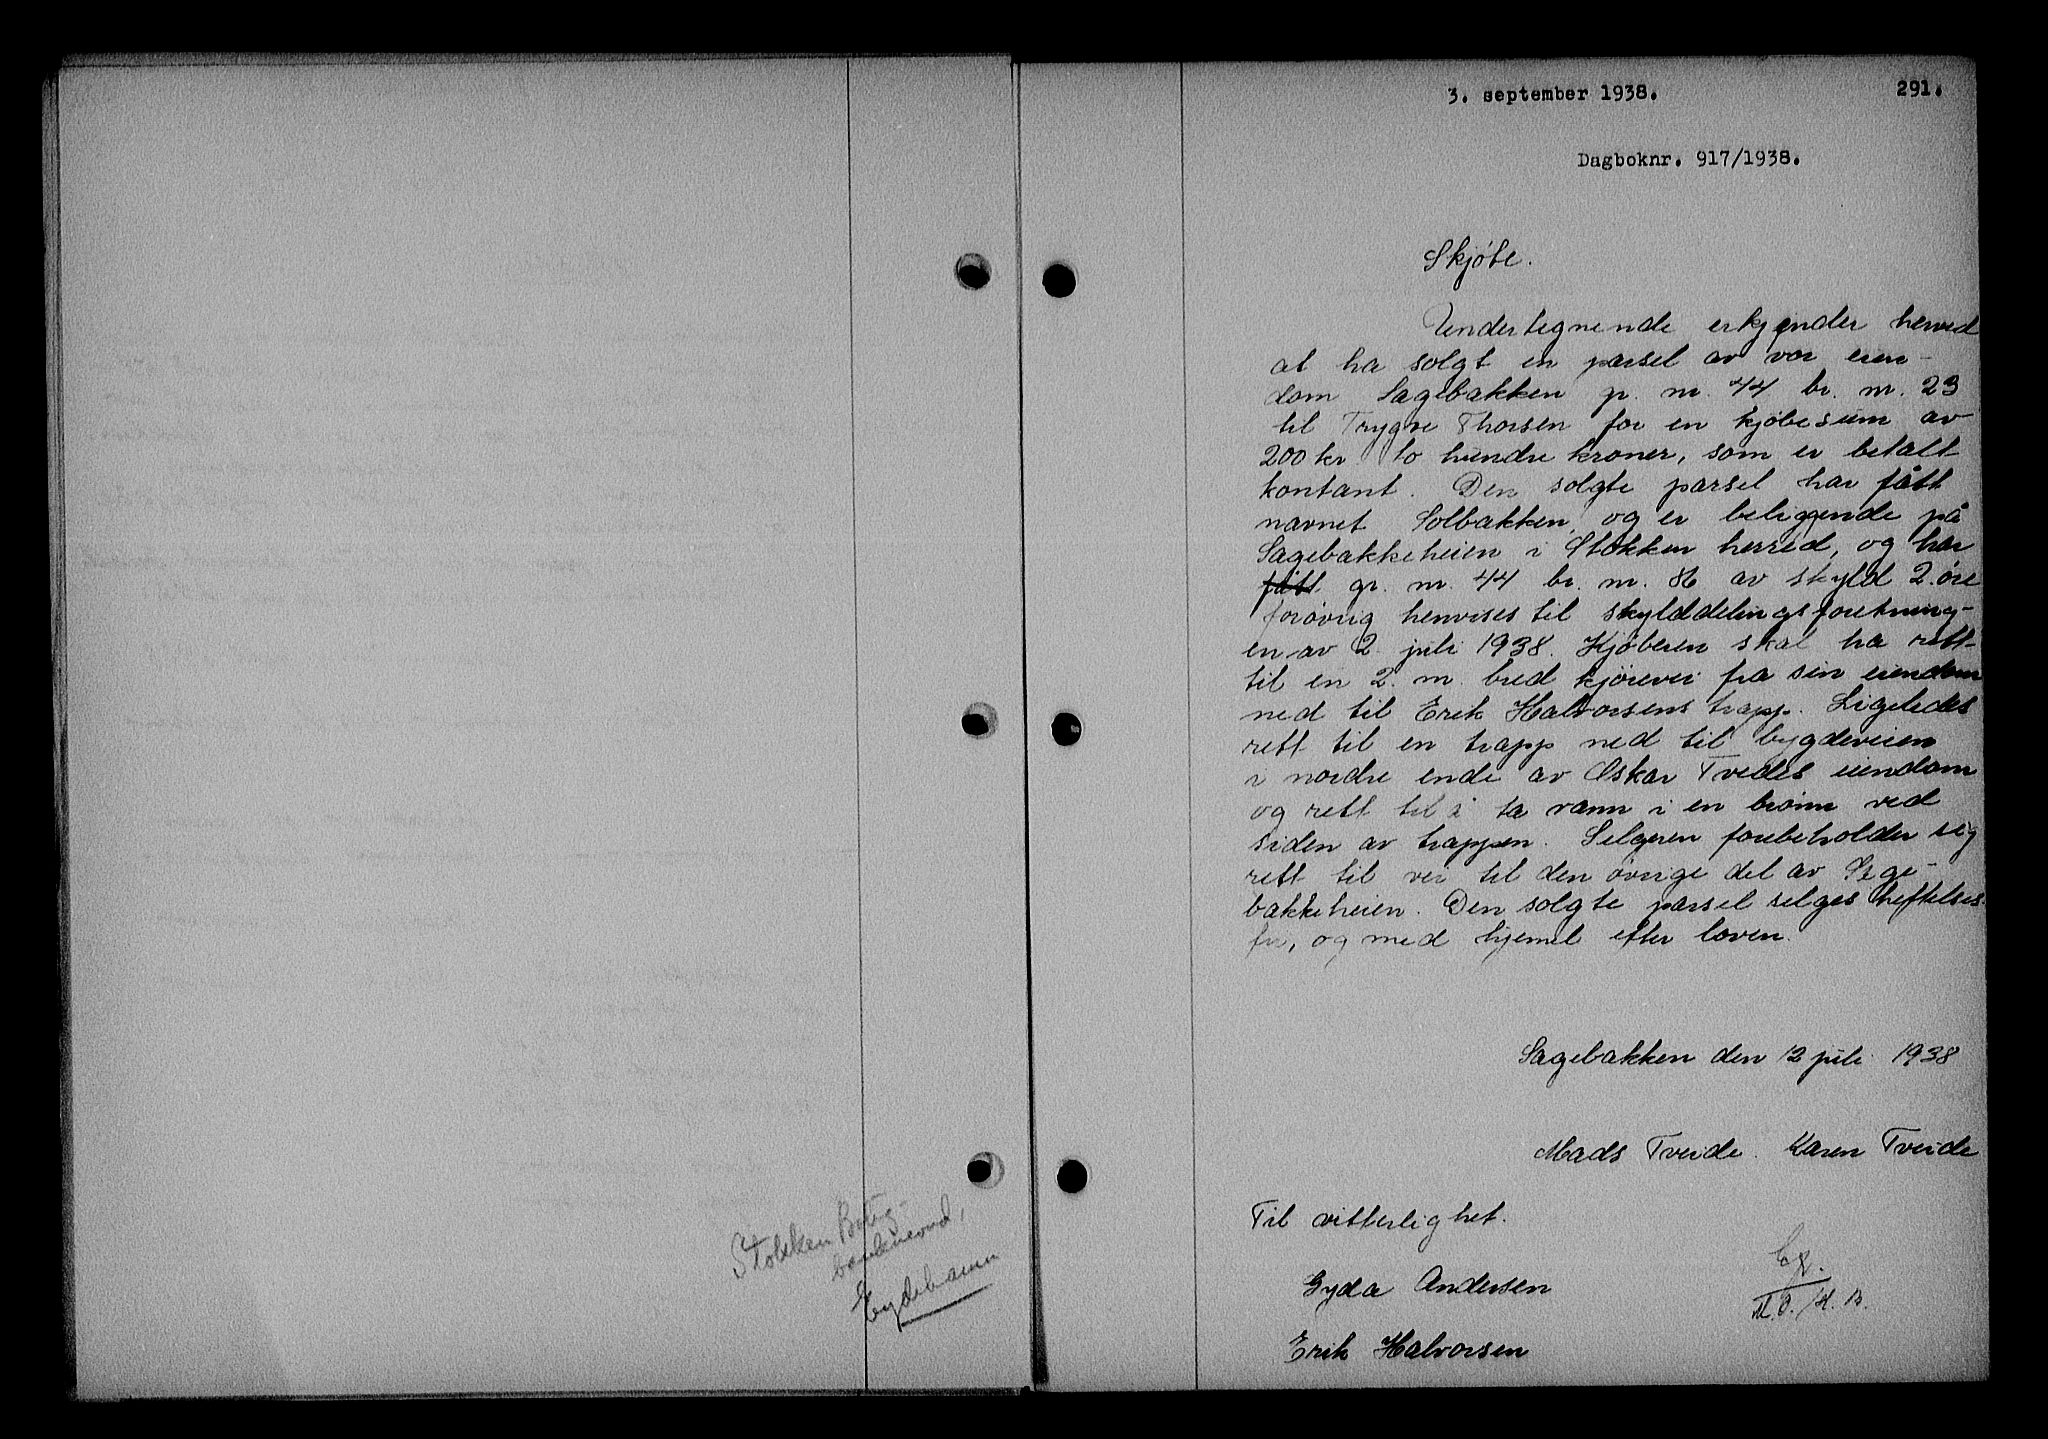 3. september 1938.
291.
Dagboknr. 917/1938.
Skjöte.
Undertegnende erkjender herved
at ha solgt en parsel av vor eien-
dom Sagebakken gr. nr. 44 br. nr. 23
til Trygve Thorsen for en kjøbesum av
200 kr to hundre kroner, som er betalt
kontant. Den solgte parsel har fått
navnet Solbakken, og er beliggende på
Sagebakkeheien i Stokken herred, og har
fått gr. nr. 44 br. nr. 86 av skyld 2 øre
forøvrig henvises til skylddelingsforetning-
en av 2 juli 1938. Kjøberen skal ha rett
til en 2. m. bred kjörevei fra sin eiendom
ned til Erik Halvorsens trapp. Ligeledes
rett til en trapp ned til bygdeveien
i nordre ende av Oskar Tvedes eiendom
og rett til å ta vann i en brönn ved
siden av trappen. Selgeren forebeholder sig
rett til vei til den övrige del av Sage-
bakkeheien. Den solgte parsel selges heftelses-
fri, og med hjemel efter loven.
Sagebakken den 12 juli 1938
Mads Tveide. Karen Tveide
Til vitterlighet.
Gyda Andersen
Erik Halvorsen
Stokken
Eydehavn